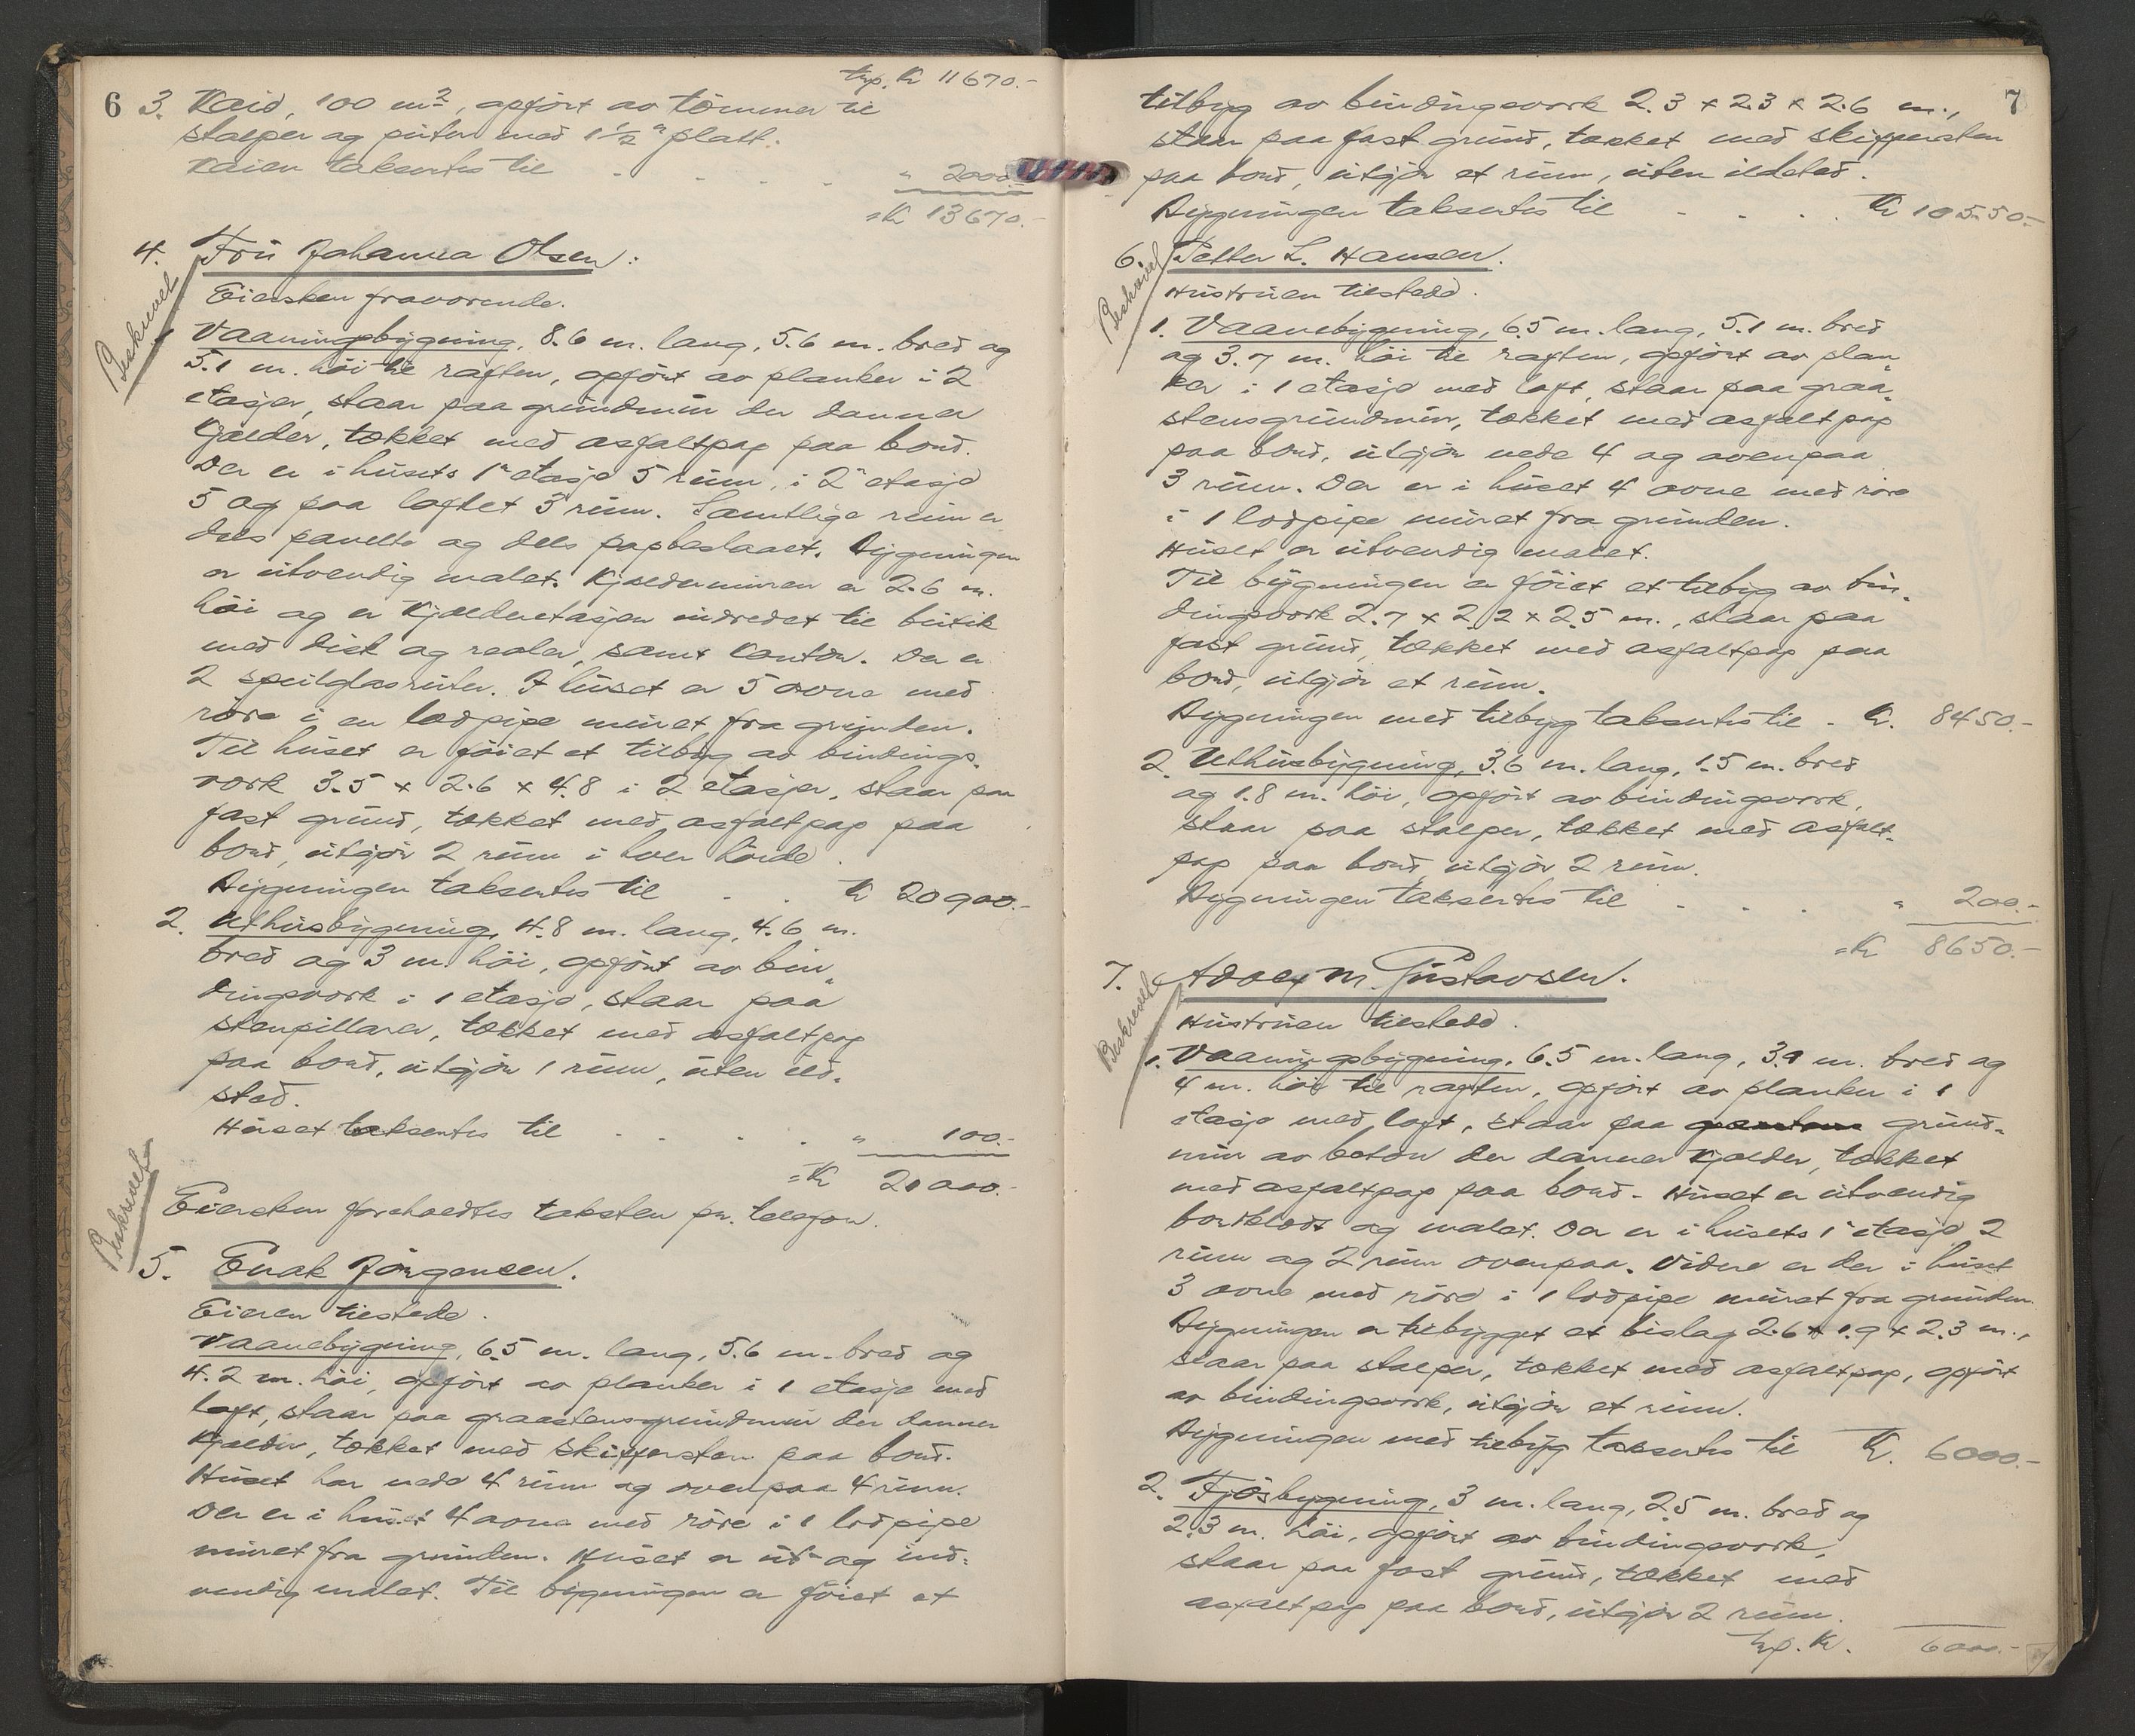 6
trp. Kr 11670.-
3. Kai, 100 m², opført av tømmer i
stolper og puter med 1½" platt.
Kaien takseres til . . . . " 2000.-
= Kr 13670.-
4. Fru Johanna Olsen:
Beskrevet
Eiersken fraværende.
1. Vaaningsbygning, 8.6 m. lang, 5.6 m. bred og
5.1 m. høi til raften, opført av planker i 2
etasjer, staar paa grundmur der danner
kjælder, tækket med asfaltpap paa bord.
Der er i husets 1ᵉ etasje 5 rum, i 2ᵉ etasje
5 og paa loftet 3 rum. Samtlige rum er
dels panelte og dels papbeslaaet. Bygningen
er utvendig malet. Kjældermuren er 2.6 m.
høi og er kjælderetasjen indredet til butik
med disk og reoler, samt kontor. Der er
2 speilglasruter. I huset er 5 ovne med
røre i en lodpipe muret fra grunden.
Til huset er føiet et tilbyg av bindings-
verk 3.5 x 2.6 x 4.8 i 2 etasjer, staar paa
fast grund, tækket med asfaltpap paa
bord, utgjør 2 rum i hver høide.
Bygningen takseres til . . Kr 20900.-
2. Uthusbygning, 4.8 m. lang, 4.6 m.
bred og 3 m. høi, opført av bin-
dingsverk i 1 etasje, staar paa
stenpillarer, tækket med asfaltpap
paa bord, utgjør 1 rum, uten ild-
sted.
Huset takseres til . . . . " 100.-
= Kr 21000.-
Eiersken foreholdtes taksten pr. telefon.
Beskrevet
5. Enok Jørgensen.
Eieren tilstede.
Vaanebygning, 6.5 m. lang, 5.6 m. bred og
4.2 m. høi, opført av planker i 1 etasje med
loft, staar paa graastensgrundmur der danner
kjælder, tækket med skiffersten paa bord.
Huset har nede 4 rum og ovenpaa 4 rum.
Der er i huset 4 ovne med røre i 1 lodpipe
muret fra grunden. Huset er ut- og ind-
vendig malet. Til bygningen er føiet et
7
tilbyg av bindingsverk 2.3 x 2.3 x 2.6 m.,
staar paa fast grund, tækket med skiffersten
paa bord, utgjør et rum, uten ildsted.
Bygningen takseres til . . . . Kr 10550.-
6. Petter L. Hansen.
Beskrevet
Hustruen tilstede.
1. Vaanebygning, 6.5 m. lang, 5.1 m. bred
og 3.7 m. høi til raften, opført av plan-
ker i 1 etasje med loft, staar paa graa-
stensgrundmur, tækket med asfaltpap
paa bord, utgjør nede 4 og ovenpaa
3 rum. Der er i huset 4 ovne med røre
i 1 lodpipe muret fra grunden.
Huset er utvendig malet.
Til bygningen er føiet et tilbyg av bin-
dingsverk 2.7 x 2.2 x 2.5 m., staar paa
fast grund, tækket med asfaltpap paa
bord, utgjør et rum.
Bygningen med tilbyg takseres til . Kr. 8450.-
2. Uthusbygning, 3.6 m. lang, 1.5 m. bred
og 1.8 m. høi, opført av bindingsverk,
staar paa stolper, tækket med asfalt-
pap paa bord, utgjør 2 rum.
Bygningen takseres til . . . " 200.-
= Kr 8650.-
7. Adolf M. Gustavsen.
Beskrevet
Hustruen tilstede.
1. Vaaningsbygning, 6.5 m. lang, 3.9 m. bred og
4 m. høi til raften, opført av planker i 1
etasje med loft, staar paa grund-
mur av beton der danner kjælder, tækket
med asfaltpap paa bord. Huset er utvendig
bordklædt og malet. Der er i husets 1ᵉ etasje 2
rum og 2 rum ovenpaa. Videre er der i huset
3 ovne med røre i 1 lodpipe muret fra grunden.
Bygningen er tilbygget et bislag 2.6 x 1.9 x 2.3 m.,
staar paa stolper, tækket med asfaltpap, opført
av bindingsverk, utgjør et rum.
Bygningen med tilbyg takseres til Kr. 6000.-
2. Fjøsbygning, 3 m. lang, 2.5 m. bred og
2.3 m. høi, opført av bindingsverk,
staar paa fast grund, tækket med
asfaltpap paa bord, utgjør 2 rum.
trp. Kr. 6000.-